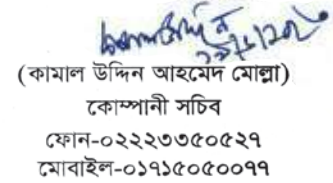 (কামাল উদ্দিন আহমেদ মোল্লা)
কোম্পানী সচিব
ফোন-০২২২৩৩৫০৫২৭
মোবাইল-০১৭১৫০৫০০৭৭